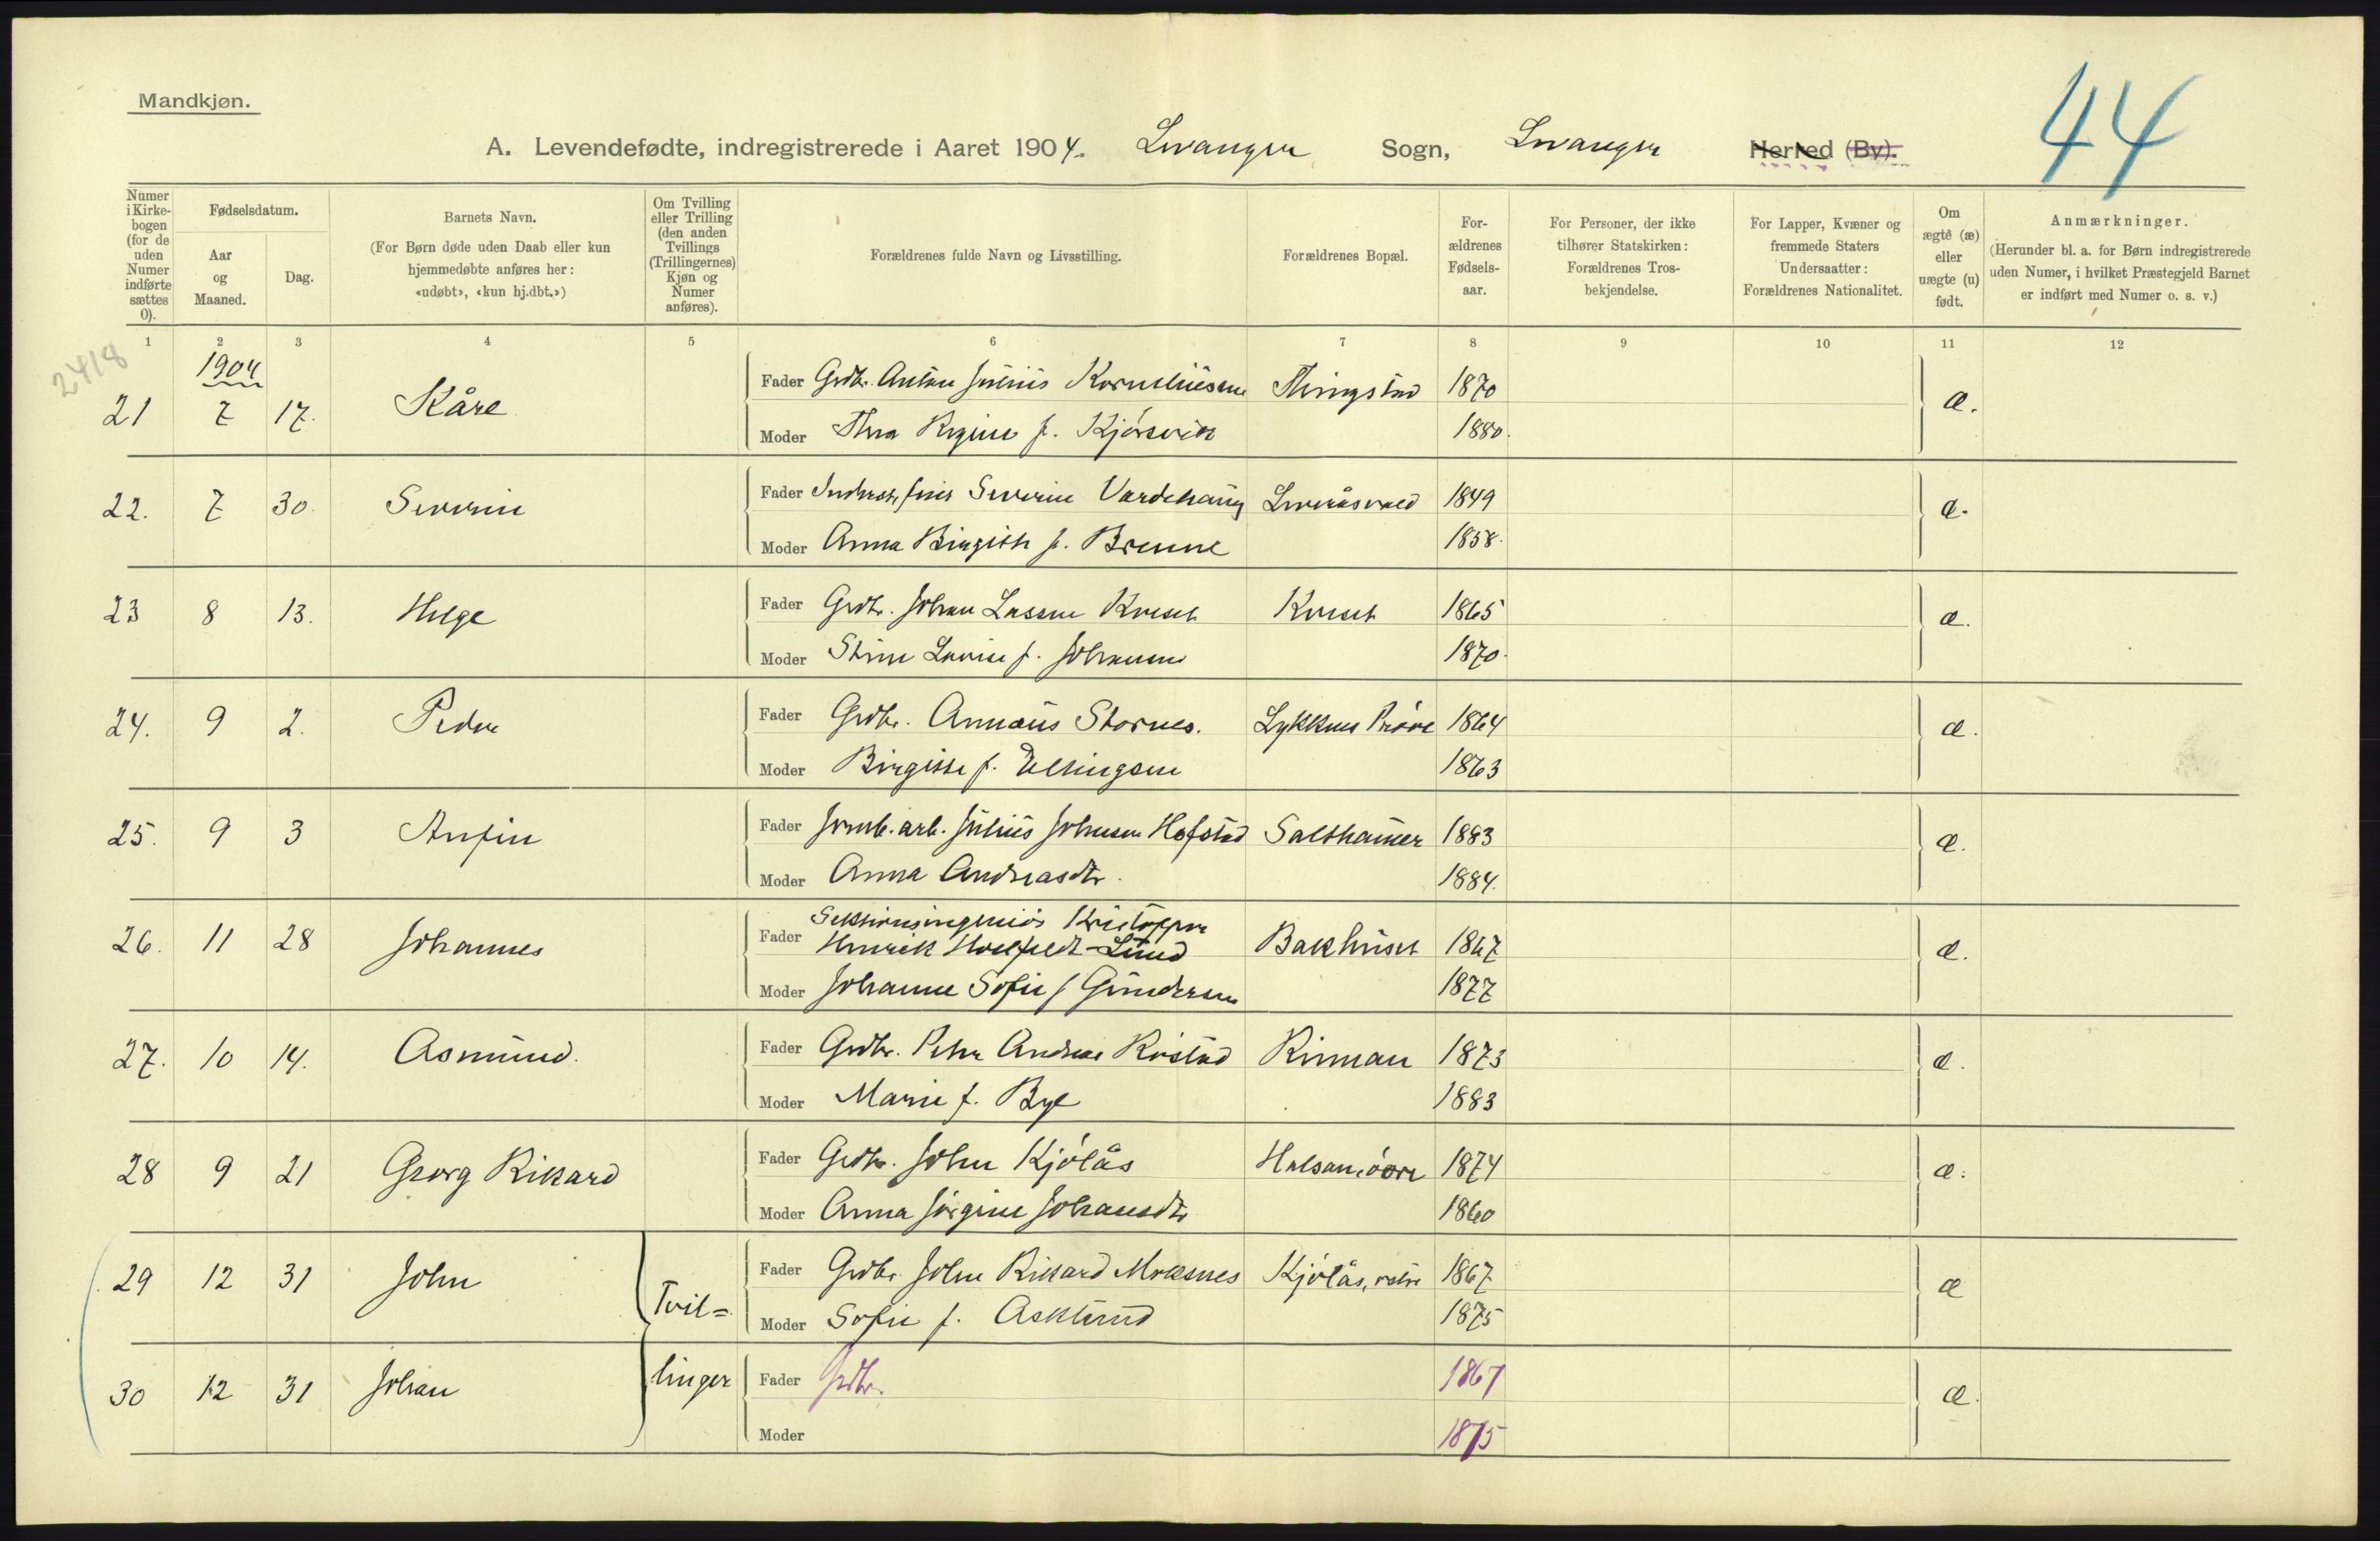 Mandkjøn.
44
A. Levendefødte, indregistrerede i Aaret 1904. Levanger Sogn, Levanger Herred (By).
Numer i Kirke-bogen (for de uden Numer indførte sættes 0).
Fødselsdatum.
Aar og Maaned.
Dag.
Barnets Navn.
(For Børn døde uden Daab eller kun hjemmedøbte anføres her: «udøbt», «kun hj.dbt.»)
Om Tvilling eller Trilling (den anden Tvillings (Trillingernes) Kjøn og Numer anføres).
Forældrenes fulde Navn og Livsstilling.
Forældrenes Bopæl.
For-ældrenes Fødsels-aar.
For Personer, der ikke tilhører Statskirken: Forældrenes Tros-bekjendelse.
For Lapper, Kvæner og fremmede Staters Undersaatter: Forældrenes Nationalitet.
Om ægte (æ) eller uægte (u) født.
Anmærkninger.
(Herunder bl. a. for Børn indregistrerede uden Numer, i hvilket Præstegjeld Barnet er indført med Numer o. s. v.)
1 2 3 4 5 6 7 8 9 10 11 12
2418
1904
21 7 17. Kåre Fader Grdbr. Anton Julius Korneliussen Thingstad 1870 æ.
Moder Thea Regine f. Kjørsvik 1880.
22. 7 30. Severin Fader Inderst, Severin Vardehaug 1849 æ.
Moder Anna Birgith f. Brenne 1858.
23 8 13. Helge Fader Grdbr. Johan Lassen Kveset Kveset 1865 æ.
Moder Stine Lovise f. Johansen 1870.
24. 9 2. Peder Fader Grdbr. Annæus Stornes. Lykkens Prøve 1864 æ.
Moder Birgitte f. Ellingsen 1863
25. 9 3 Anfin Fader Jernb. arb. Julius Johnsen Hofstad Salthamer 1883 æ.
Moder Anna Andreasdtr. 1884.
26. 11 28 Johannes Fader Sektionsingeniør Kristoffer
Henrik Holfeldt-Lund Bakhuset 1867 æ.
Moder Johanne Sofie f Gundersen 1877
27. 10 14. Asmund. Fader Grdbr. Peter Andreas Rostad Rinnan 1873 æ.
Moder Marie f. Bye 1883
28 9 21 Georg Rikard Fader Grdbr. John Kjølås 1874 æ.
Moder Anna Jørgine Johansdtr 1860
29 12 31 John Tvil= Fader Grdbr. John Rikard Moksnes Kjølås, østre 1867 æ
Moder Sofie f. Asklund 1875
30 12 31 Johan linger Fader Grdbr. 1867 æ.
Moder 1875